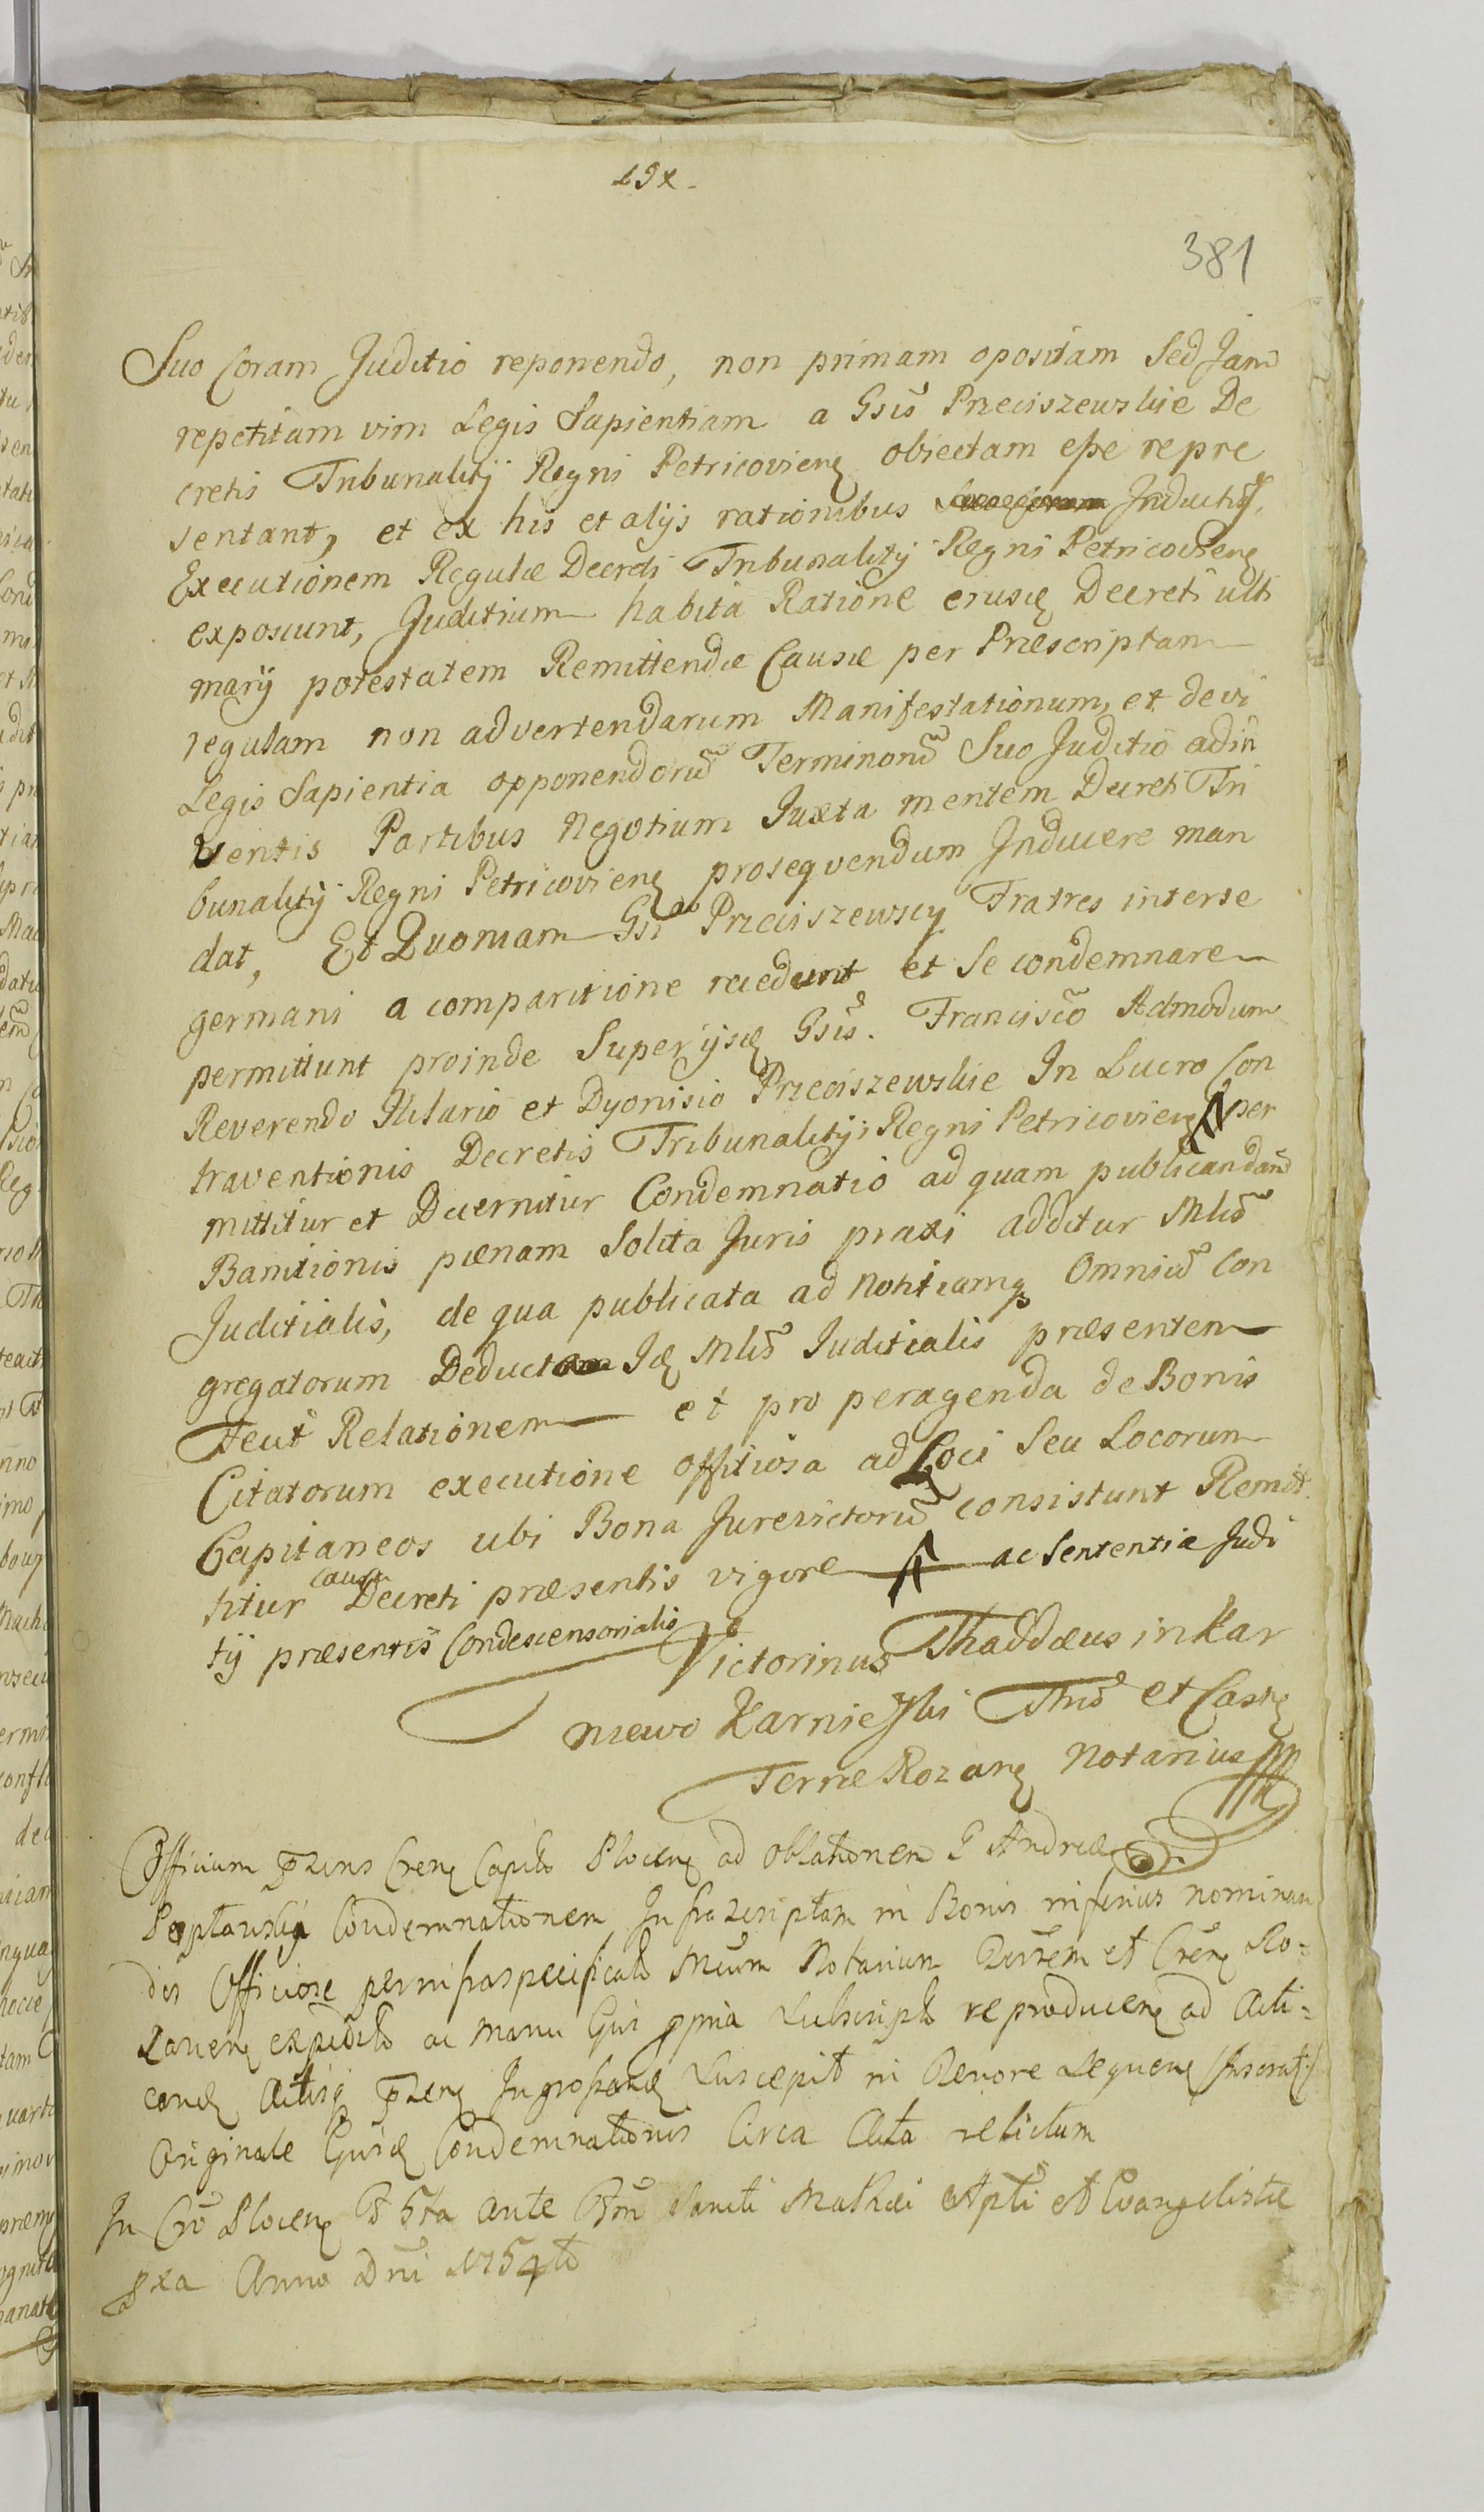 381
Suo Coram Juditio reponendo, non primam opositam Sed Jam
repetitam vim Legis Sapientiam a Gsis Przeciszewskie De
cretis Tribunalitij Regni Petricovien obiectam esse repre
sentant, et ex his et alijs rationibus Inductis
Executionem Regulæ Decreti Tribunalitij Regni Petricovien
exposcunt, Juditium habita Ratione eiusd Decreti ulti
marij potestatem Remittendæ Causæ per Præscriptam
regulam non advertendarum Manifestationum, et de vi
Legis Sapientia opponendorũ Terminorũ Suo Juditio adin
ventis Partibus Negotium Juxta mentem Decreti Tri
bunalitij Regni Petricovien prosequendum Inducere man
dat, Et Quoniam Gsi Przeciszewscy Fratres interse
germani a comparitione recedunt et Se condemnare
permittunt proinde Super ijsd Gsis. Francisco Admodum
Reverendo Hilario et Dyonisio Przeciszewskie In Lucro Con
traventionis Decretis Tribunalitijs Regni Petricovien per
mittitur et Decernitur Condemnatio ad quam publicandam
Banitionis pænam Solita Juris praxi additur Mlis
Juditialis, de qua publicata ad Notitiamq Omniũ Con
gregatorum Deducta Id Mlis Juditialis præsentem
fecit Relationem et pro peragenda de Bonis
Citatorum executione offitiosa ad Loci Seu Locorum
Capitaneos ubi Bona Jurevictorũ consistunt Remit
titur causa Decreti præsentis vigore ac Sententia Judi
tij præsentis Condescensorialis
Victorinus Thaddæus in Kar
niewo Karnieski Thris et Castr
Terræ Rozan Notarius mp
Officium Capitl Plocen ad oblationem G Andreæ
Condemnationem Infrascriptam in Bonis inferius nominan
dis Officiose per infraspecificatũ Notarium
expeditã ac manu Eius ppria Subscriptã reproducen ad Acti-
cand Actisq Ingrossand Suscepit in Tenore Sequen
Originale Eiusd Condemnationis Circa Acta relictum
In Cro Plocen F 5ta ante Ftm Sancti Mathæi Apli et Evangelistæ
Anno Dni 1754to